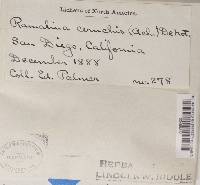 Lichens of North America
Ramalina ceruchis (Ach.) De Not.
San Diego, California
December 1888
Coll. Ed. Palmer no. 278
HERBA
LINCOLN W. RIDDLE